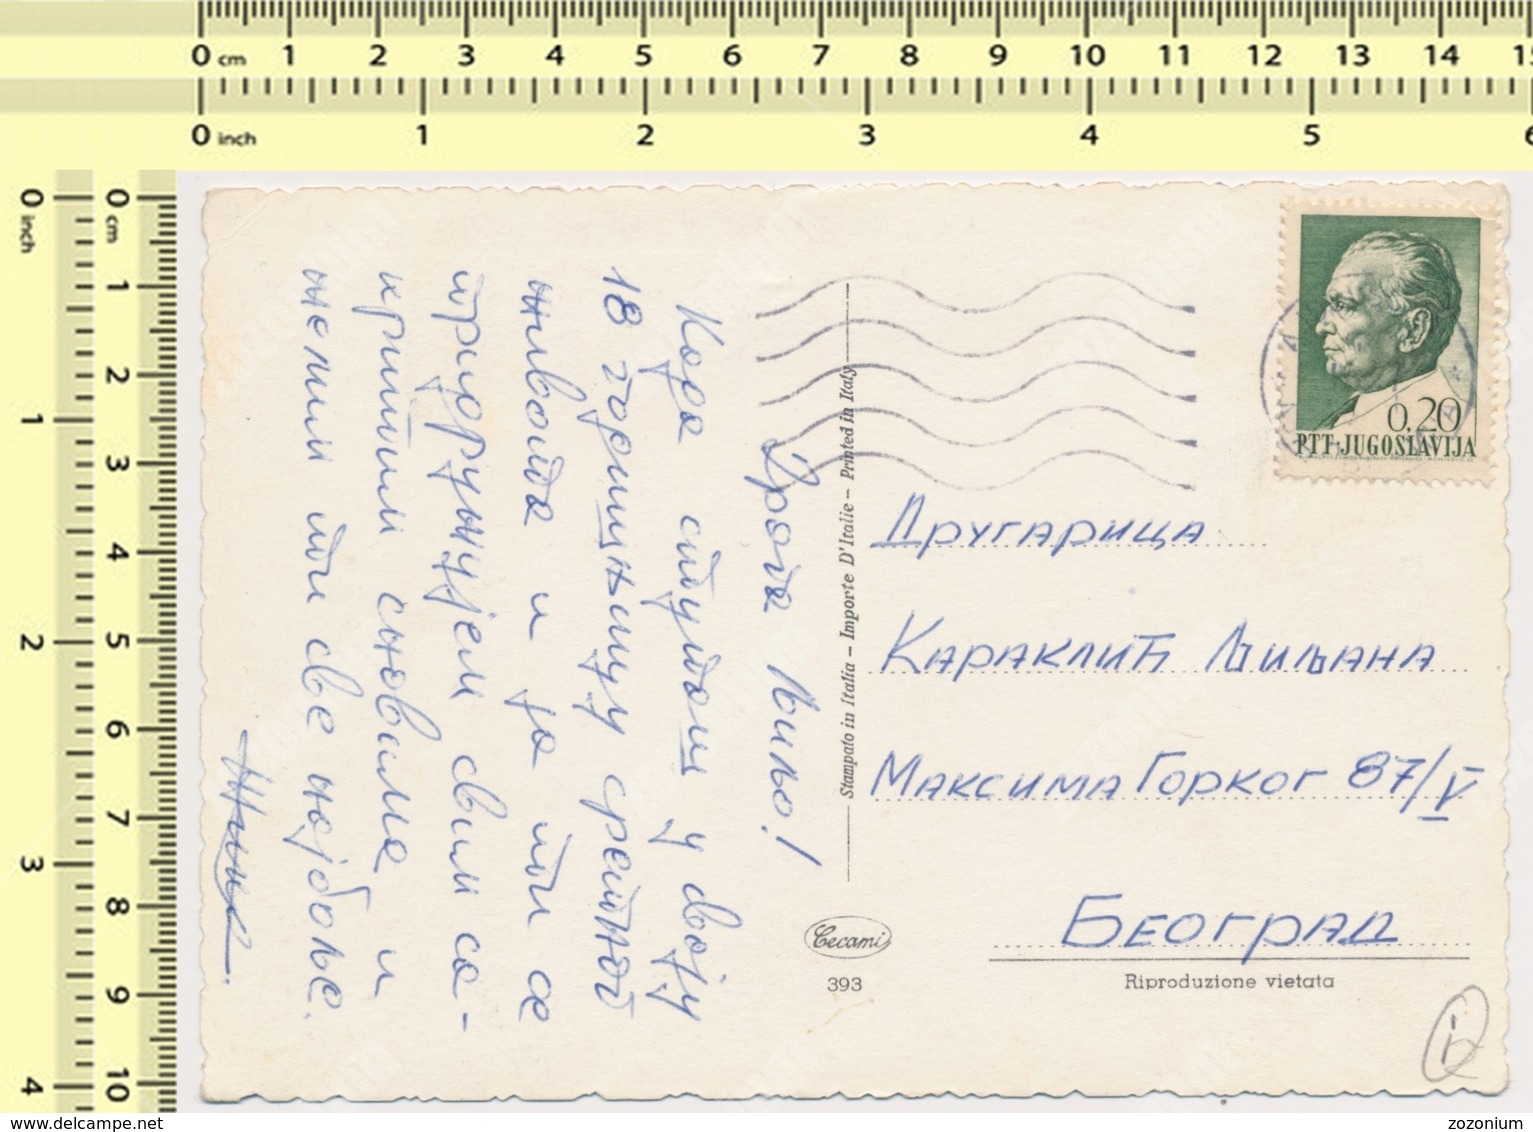 0 cm 1 2 3 4 5 6 7 8 9 10 11 12 13 14 15
0 inch 1 2 3 4 5 6
0 inch 1 2 3 4
0 cm 1 2 3 4 5 6 7 8 9 10
Драга Љиљо!
Када ступаш у своју
18 годишњицу сретног
живота и ја ти се
придружујем свим са-
критим сновима и
желим ти све најбоље.
Stampato in Italia - Importé D'Italie - Printed in Italy
Cecami
393
0,20
PTT·JUGOSLAVIJA
Другарица
Караклић Љиљана
Максима Горког 87/V
Београд
Riproduzione vietata
delcampe.net
zozonium